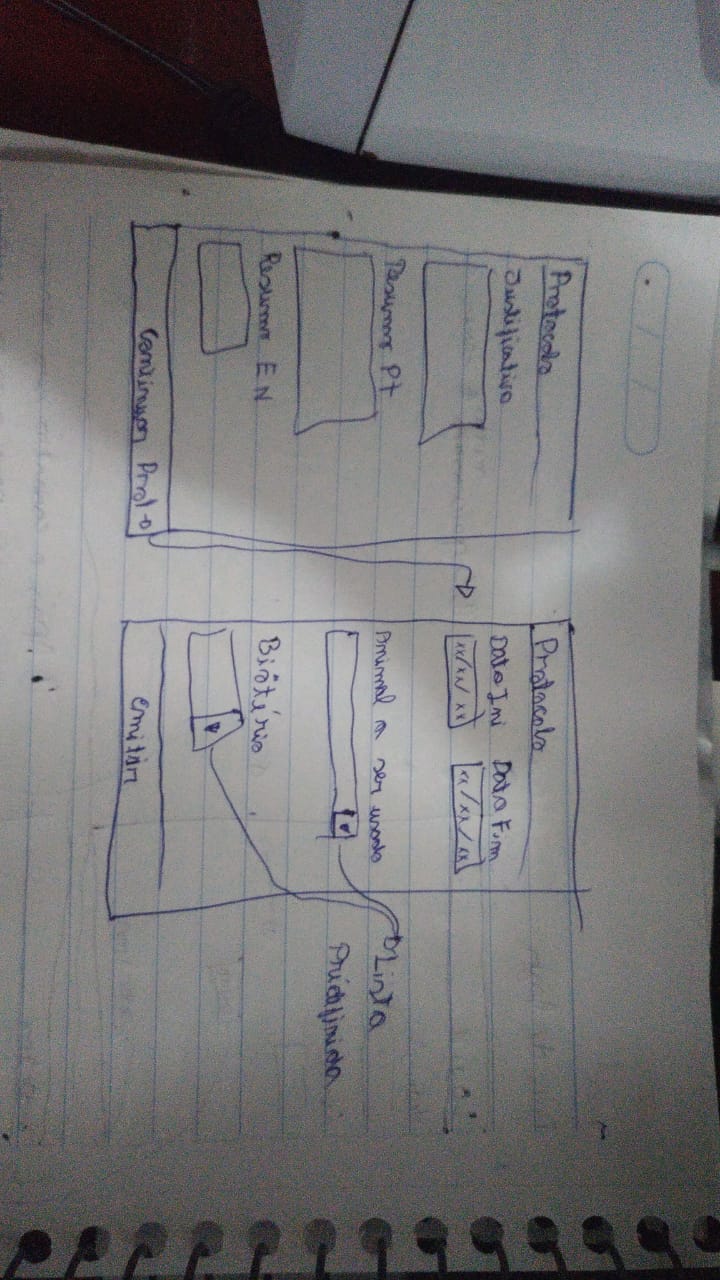 Protocolo
Justificativa
Resumo Pt
Resumo EN
Continuar Prot
Protocolo
Data Ini Data Fim
xx/xx/xx xx/xx/xx
Animal a ser usado
Biotério
Emitir
Lista
Prédefinida